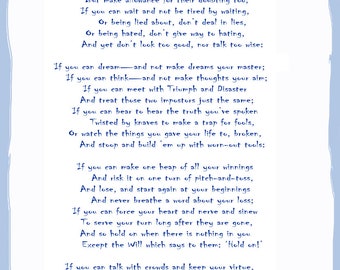 But make allowance for their doubting too;
If you can wait and not be tired by waiting,
Or being lied about, don't deal in lies,
Or being hated, don't give way to hating,
And yet don't look too good, nor talk too wise:
If you can dream—and not make dreams your master;
If you can think—and not make thoughts your aim;
If you can meet with Triumph and Disaster
And treat those two impostors just the same;
If you can bear to hear the truth you've spoken
Twisted by knaves to make a trap for fools,
Or watch the things you gave your life to, broken,
And stoop and build 'em up with worn-out tools:
If you can make one heap of all your winnings
And risk it on one turn of pitch-and-toss,
And lose, and start again at your beginnings
And never breathe a word about your loss;
If you can force your heart and nerve and sinew
To serve your turn long after they are gone,
And so hold on when there is nothing in you
Except the Will which says to them: 'Hold on!'
If you can talk with crowds and keep your virtue,